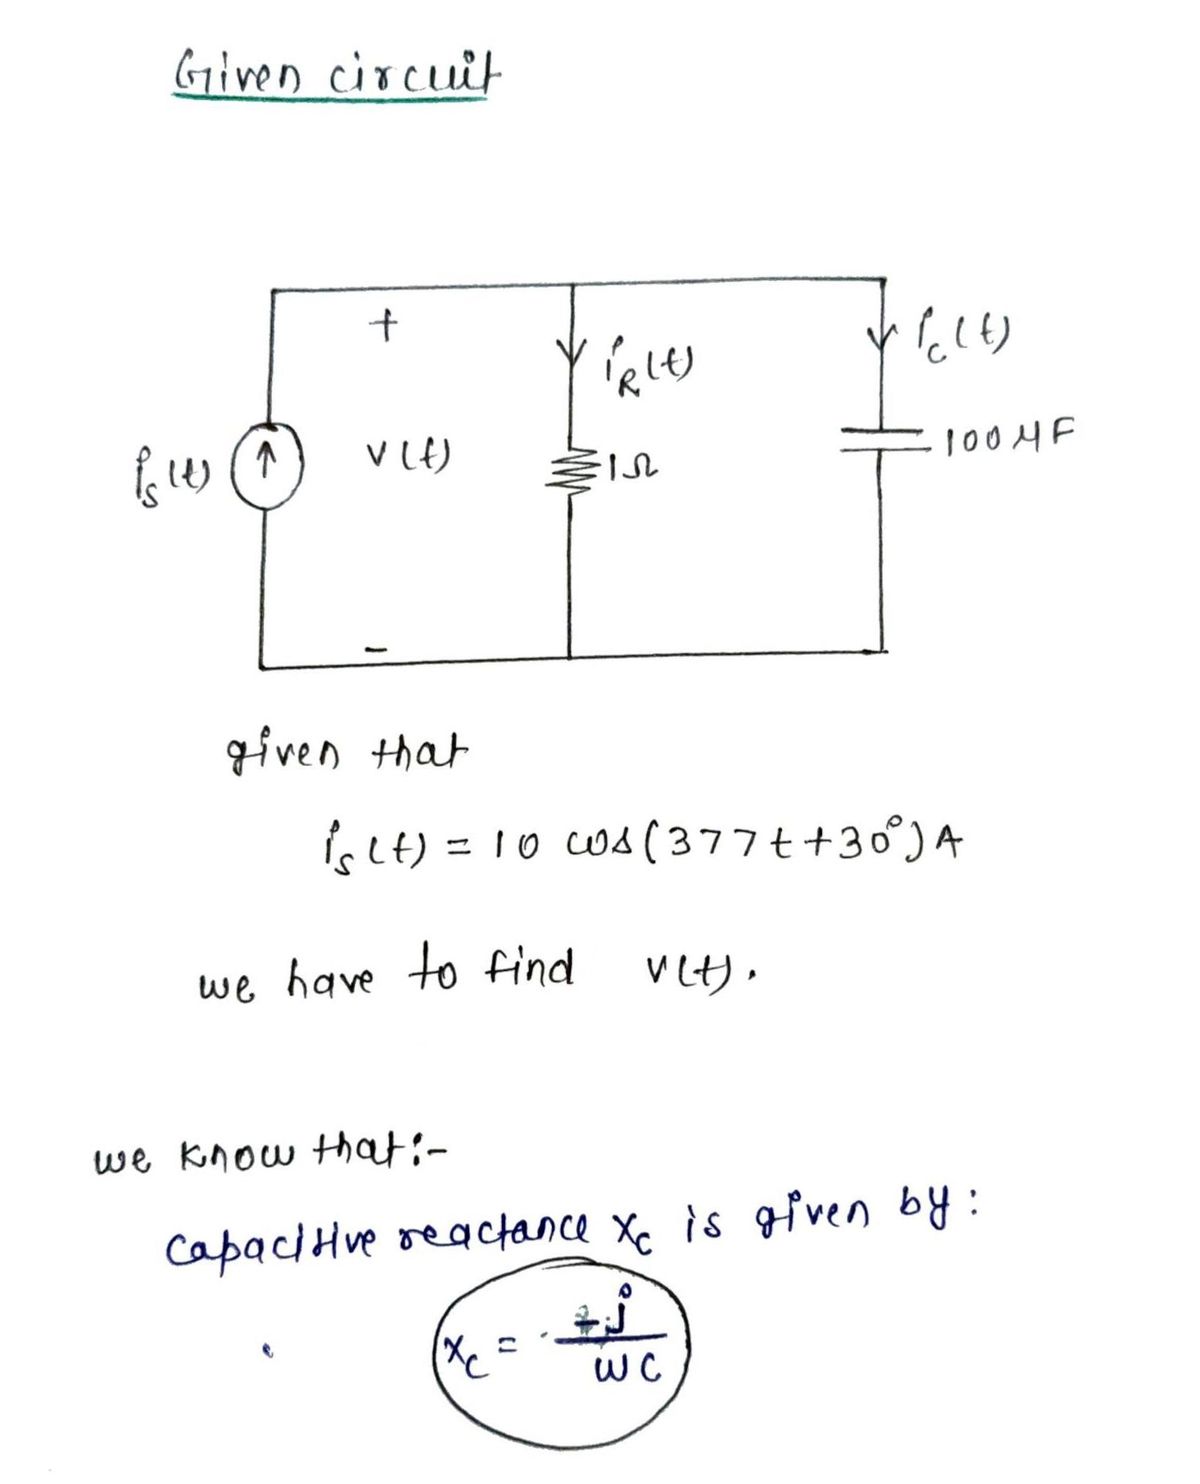 Given circuit
+
iR(t)
ic(t)
is(t)
v(t)
1Ω
100 μF
-
given that
is(t) = 10 cos(377t+30°)A
we have to find v(t).
we know that:-
capacitive reactance Xc is given by:
Xc = j
ωC